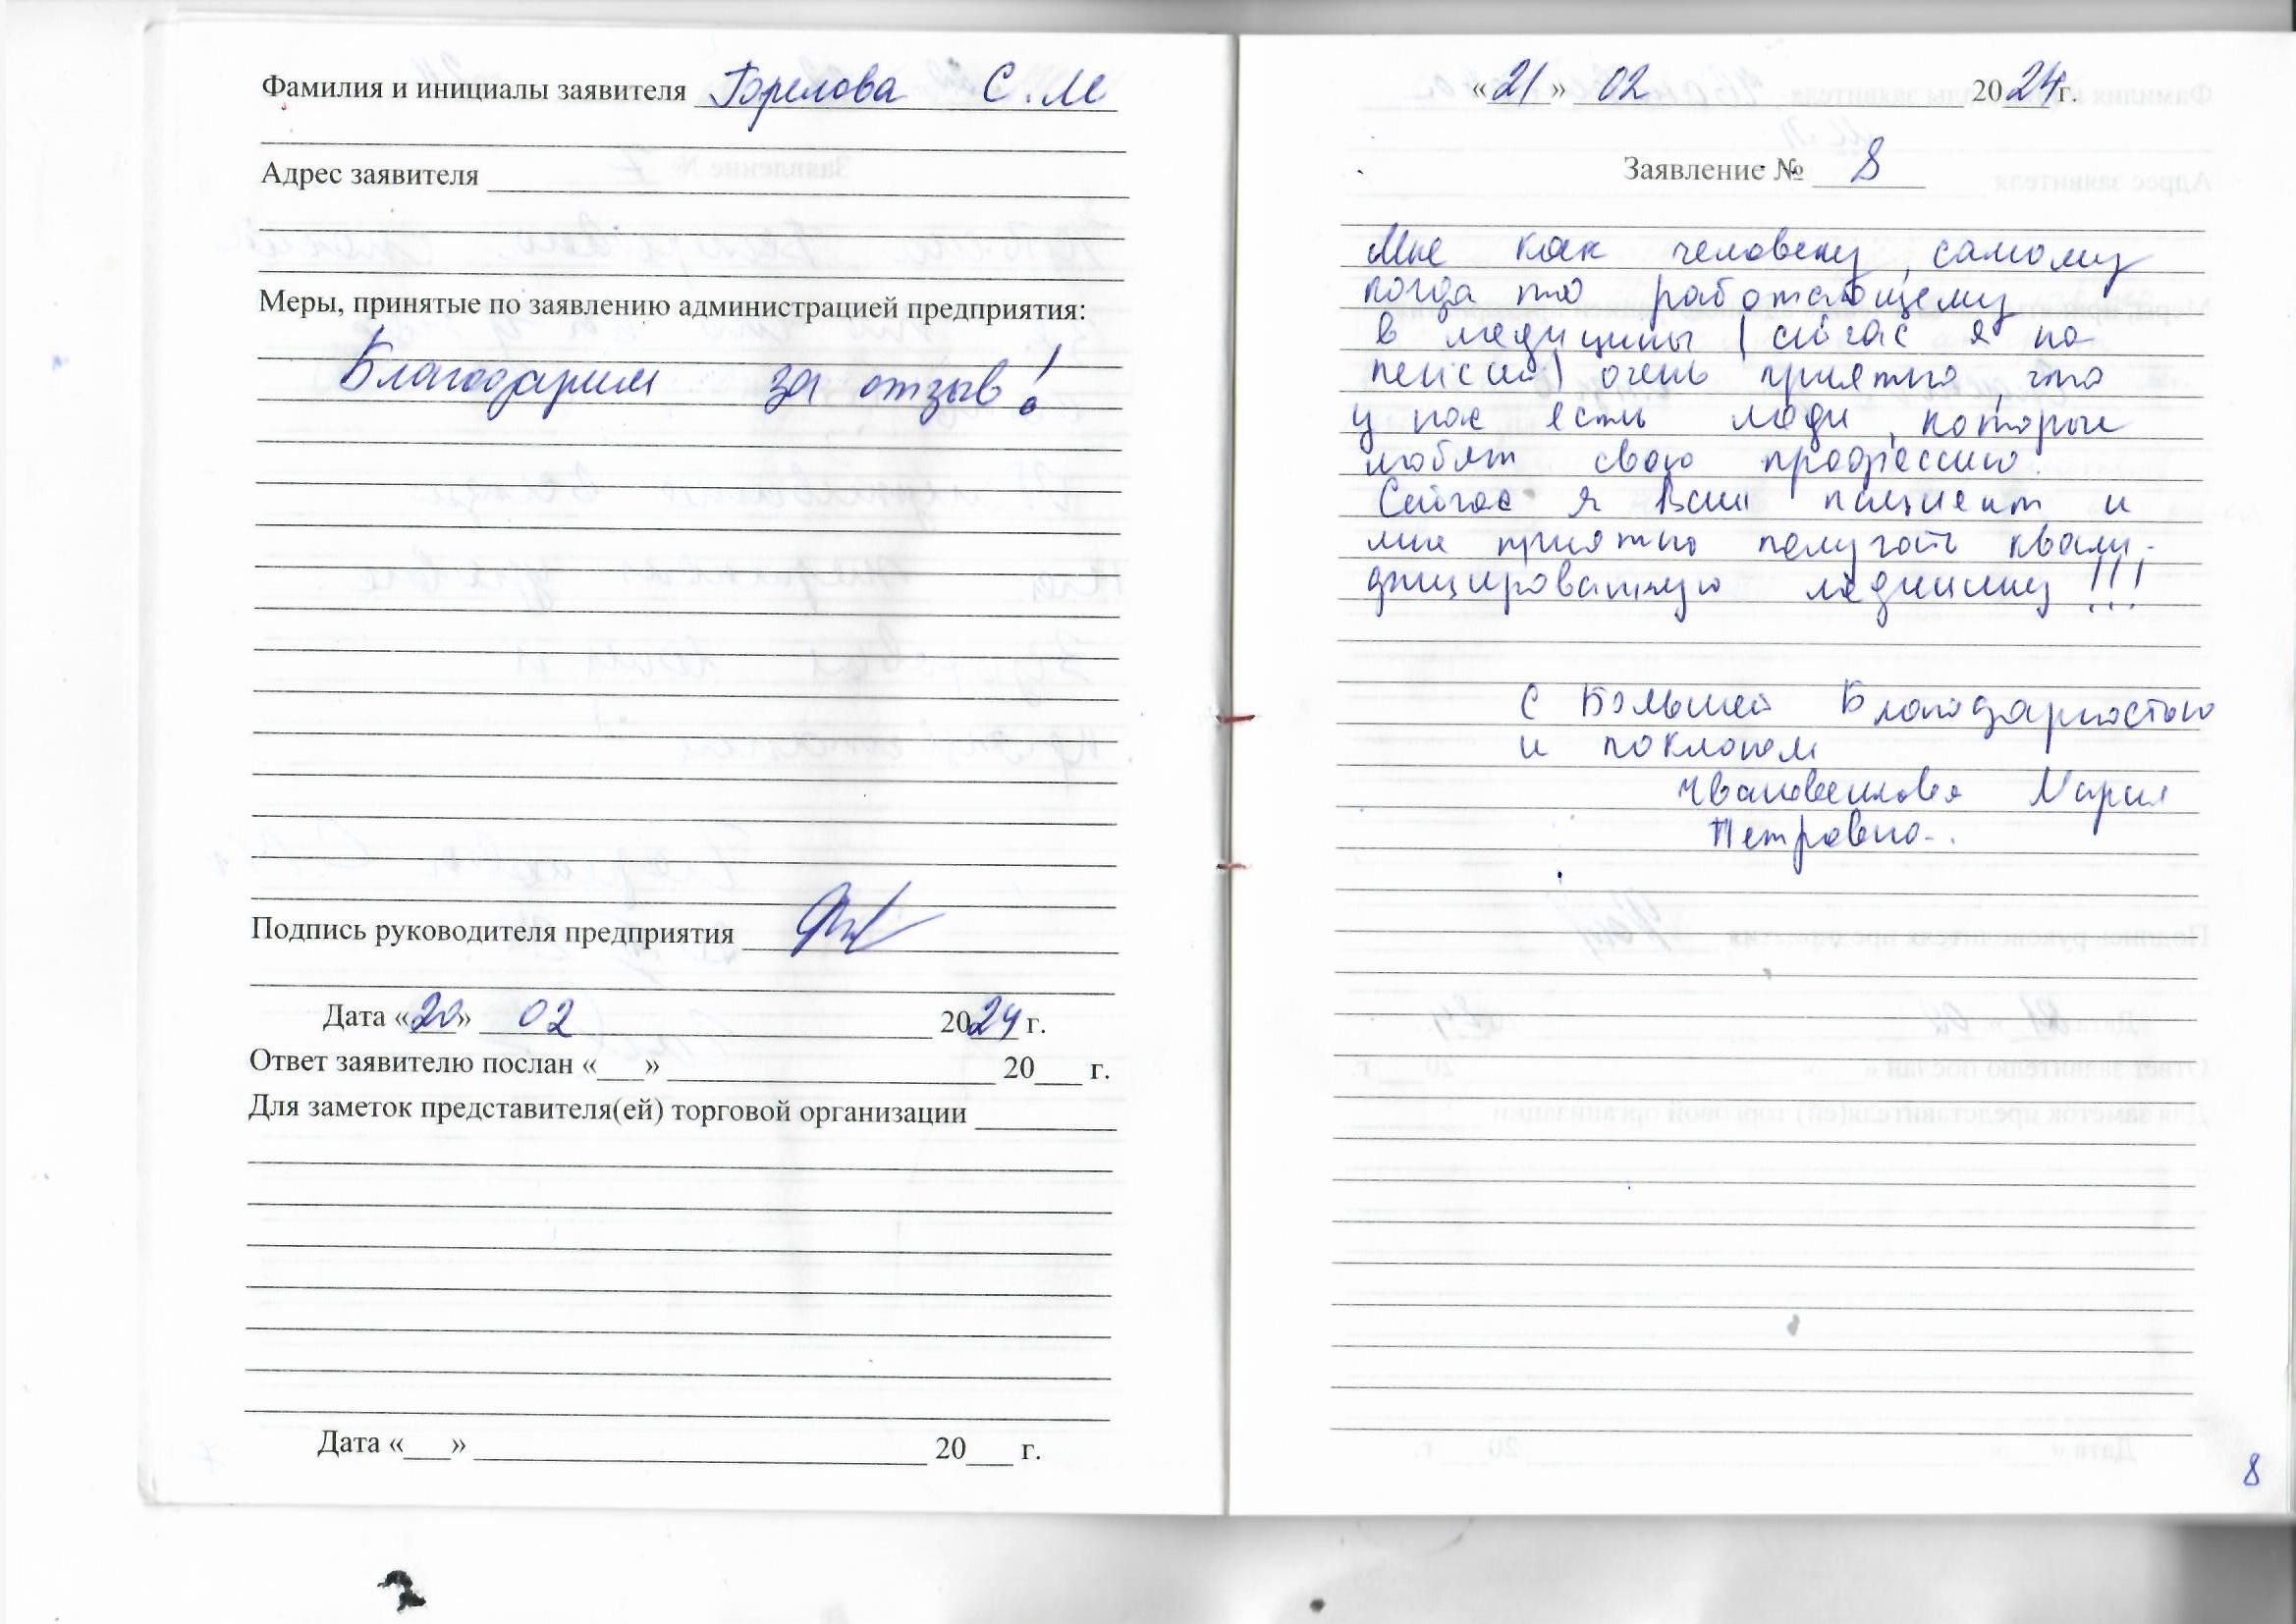 Фамилия и инициалы заявителя Горелова С. М
Адрес заявителя
Меры, принятые по заявлению администрацией предприятия:
Благодарим за отзыв!
Подпись руководителя предприятия
Дата «20» 02 2024 г.
Ответ заявителю послан «___» 20___ г.
Для заметок представителя(ей) торговой организации
Дата «___» 20___ г.
«21» 02 2024 г.
Заявление № 8
Мне как человеку, самому
когда то работающему
в медицины (сейчас я на
пенсии) очень приятно, что
у нас есть люди, которые
любят свою профессию.
Сейчас я Ваш пациент и
мне приятно получать квали-
фицированную медицину!!!
С Большей Благодарностью
и поклоном
Мария
Петровна.
8